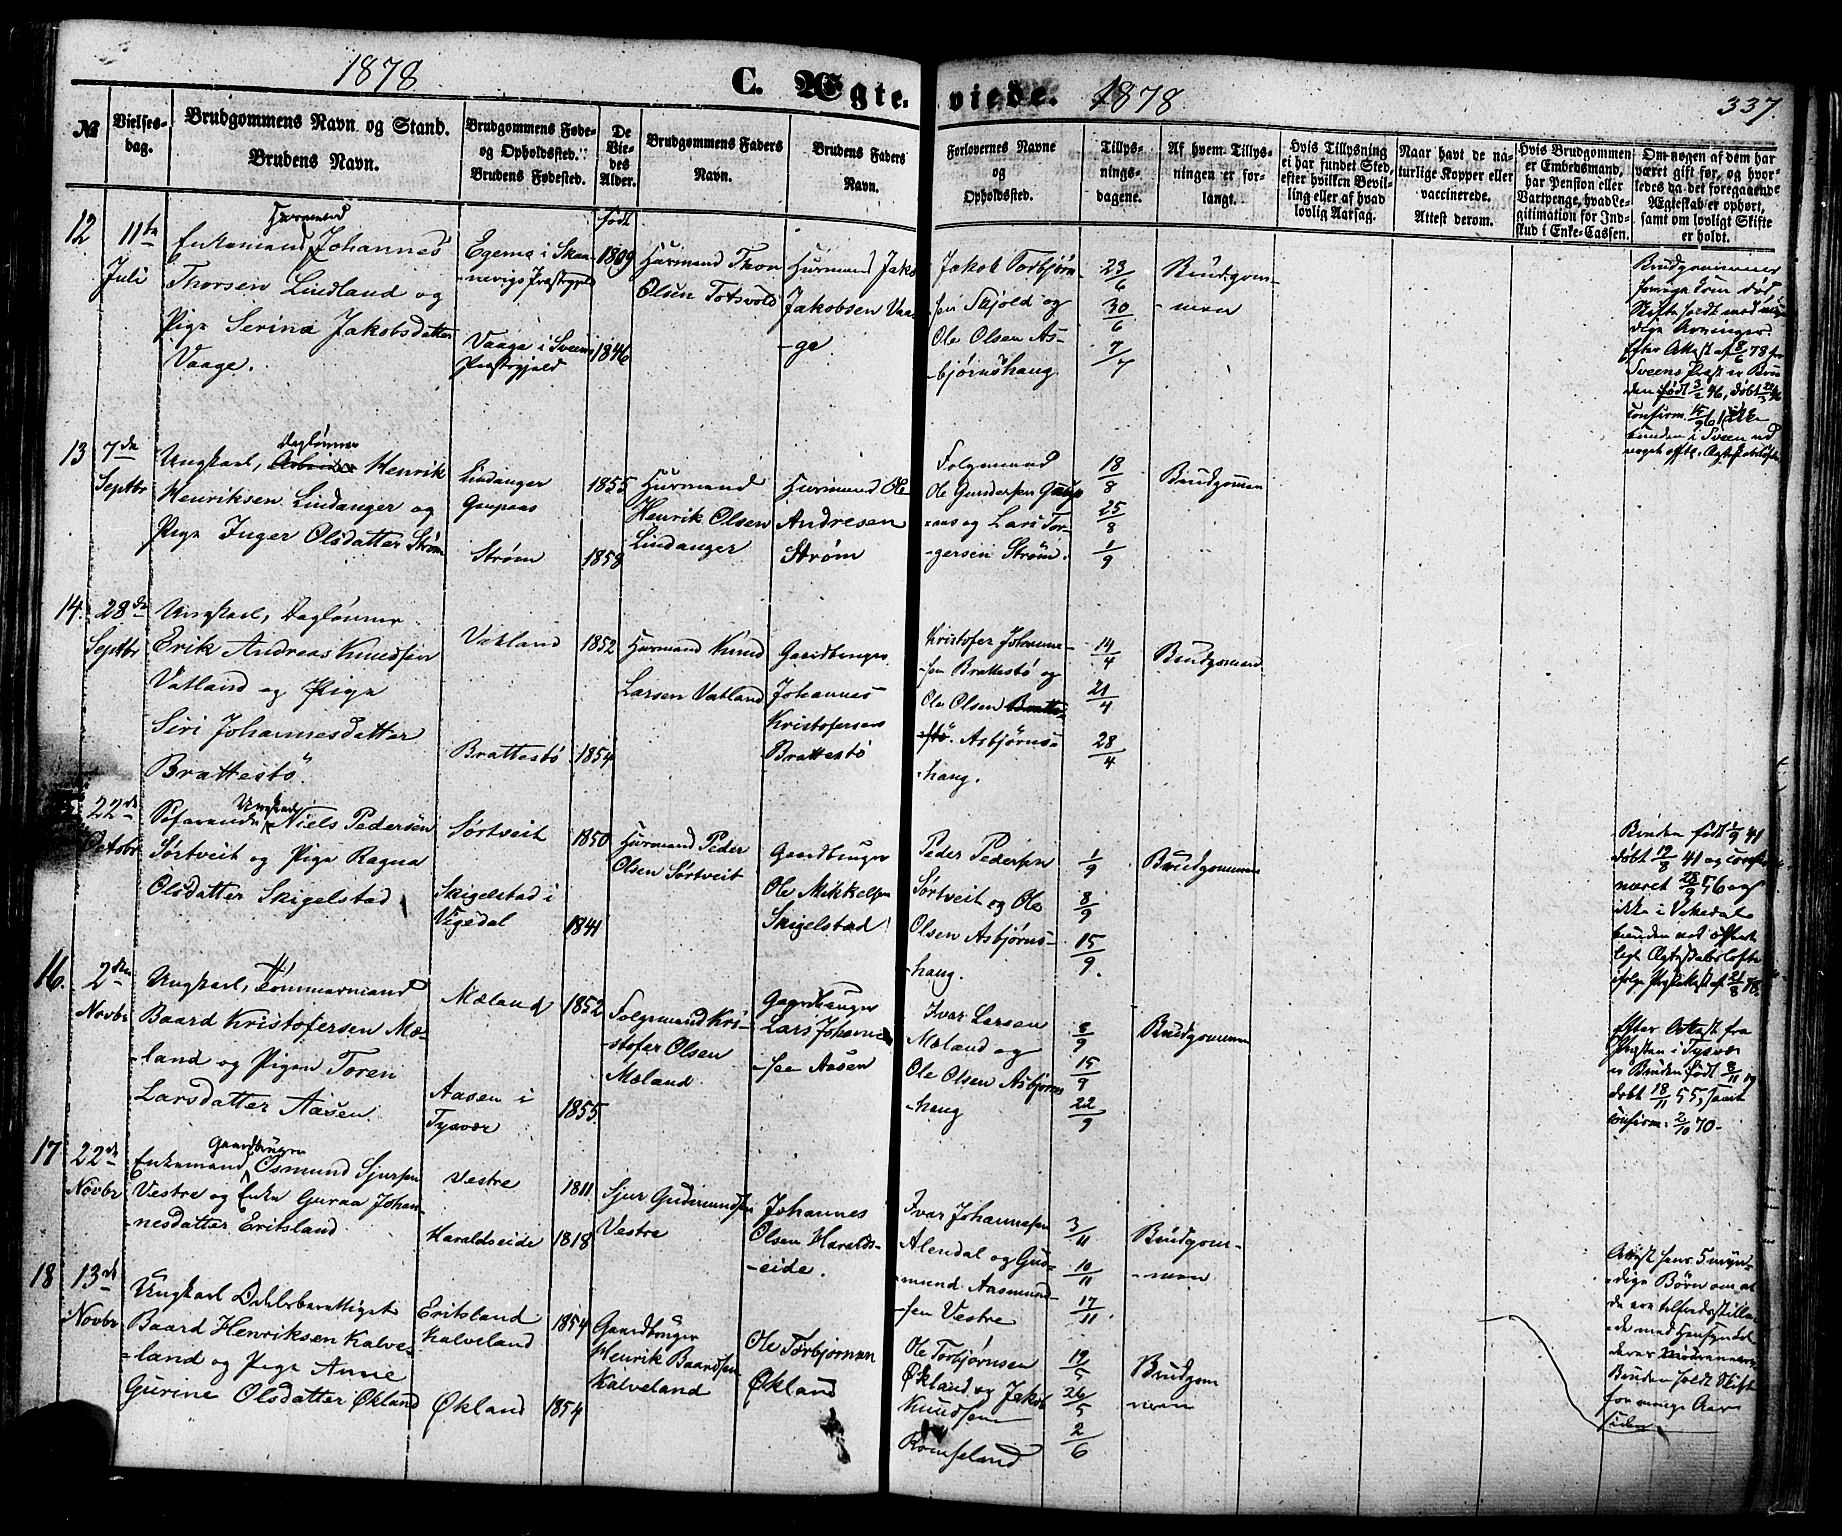 1878
C. Ægteviede.
1878
337.
№
Vielses-
dag.
Brudgommens Navn og Stand.
Brudens Navn.
Brudgommens Føde-
og Opholdssted.
Brudens Fødested.
De
Vie-
des
Alder.
Brudgommens Faders
Navn.
Brudens Faders
Navn.
Forlovernes Navne
og
Opholdssted.
Tillys-
nings-
dagene.
Af hvem Tillys-
ningen er for-
langt.
Hvis Tillysning
ei har fundet Sted,
efter hvilken Bevil-
ling eller af hvad
lovlig Aarsag.
Naar havt de na-
turlige Kopper eller
vaccinerede.
Attest derom.
Hvis Brudgommen
er Embedsmand,
har Pension eller
Vartpenge, hvad Le-
gitimation for Ind-
skud i Enke-Cassen.
Om nogen af dem har
været gift før, og hvor-
ledes da det foregaaende
Ægteskab er ophørt,
samt om lovligt Skifte
er holdt.
12
11te
Juli
Huusmand
Enkemand Johannes
Thorsen Lindland og
Pige Serina Jakobsdatter
Vaage.
Egema i Skaa-
nevigs Præstegjeld
Vaage i Sveens
Præstegjeld
født
1809
1846
Huusmand Thor
Olsen Totsvold
Huusmand Jakob
Jakobsen Vaa-
-ge
Jakob Torbjørn-
-sen Skjold og
Ole Olsen As-
-bjørnshaug
23/6
30/6
7/7
Brudgom-
-men
Brudgommens
forrige Kone død
Skifte holdt med myn-
dige Arvinger.
Efter Attest af 8/6 78 fra
Sveens Præst er Bru-
den født 3/2 46, døbt
confirm. 15/9 61 ikke
bunden i Sveen ved
noget offtl. Ægteskabsløfte
13
7de
Septbr
Dagløнner
Ungkarl, Arbeider Henrik
Henriksen Lindanger og
Pige Inger Olsdatter Strøm
Lindanger
Gaupaas
Strøm
1855
1858
Huusmand
Henrik Olsen
Lindanger
Huusmand Ole
Andresen
Strøm
Folgemand
Ole Gundersen Gaup-
aas og Lars Tor-
-gersen Strøm.
18/8
25/8
1/9
Brudgommen
14.
28de
Septbr
Ungkarl, Dagløнner
Erik Andreas Knudsen
Vatland og Pige
Siri Johannesdatter
Brattestö.
Vatland
Brattestö
1852
1854
Huusmand Knud
Larsen Vatland
Gaardbruger
Johannes
Kristofersen
Brattestö
Kristofer Johannes-
-sen Brattestö og
Ole Olsen Bratte-
-stö. Asbjørns-
-haug.
14/4
21/4
28/4
Brudgommen
22de
Octobr
Ungkarl
Søfarende Niels Pedersen
Sørtveit og Pige Ragna
Olsdatter Skigelstad
Sørtveit
Skigelstad i
Vigedal
1850
1841
Huusmand Peder
Olsen Sørtveit
Gaardbruger
Ole Mikkelsen
Skigelstad
Peder Pedersen
Sørtveit og Ole
Olsen Asbjørns-
-haug.
1/9
8/9
15/9.
Brudgommen
Bruden født 1/9 41
døbt 19/8 41 og confir-
meret 28/9 56 og
ikke i Vikedal
bunden ved offent-
ligt Ægteskabsløfte
ifølge Præsteattest af 21/8 78.
16.
2den
Novbr
Ungkarl, Tømmermand
Baard Kristofersen Mæ-
-land og Pigen Toren
Larsdatter Aasen.
Mæland
Aasen i
Tysvær
1852
1855.
Folgemand Kri-
-stofer Olsen
Mæland
Gaardbruger
Lars Johanne-
-sen Aasen
Ivar Larsen
Mæland og
Ole Olsen Asbjørns-
-haug
8/9
15/9
22/9
Brudgommen
Efter Attest fra
Præsten i Tysvær
er Bruden født 8/11
døbt 18/11 55, samt
confirm. 2/10 70-
17
22de
Novbr
Gaardbruger
Enkemand Osmund Sjursen
Vestre og Enke Guraa Johan-
-nesdatter Eritsland
Vestre
Haraldseide
1811.
1818
Sjur Gudmundsen
Vestre
Johannes
Olsen Haralds-
-eide.
Ivar Johannesen
Alendal og Gud-
mund Aasmund-
-sen Vestre
3/11
10/11
17/11
Brudgom-
-men
Attest fra hans 5 myn-
-dige Børn om at
de ere tilfredsstille-
-de med Hensyn til
deres Mødrenearv.
Bruden holdt Skifte
for mange Aar
siden.
18
13de
Novbr
Ungkarl Odelsberettiget
Baard Henriksen Kalve-
-land og Pige Anne
Gurine Olsdatter Økland
Eritsland
Kalveland
Økland
1854
1854
Gaardbruger
Henrik Baardsen
Kalveland
Ole Torbjørnsen
Økland
Ole Torbjørnsen
Økland og Jakob
Knudsen
Romseland
19/5
26/5
2/6
Brudgom
men